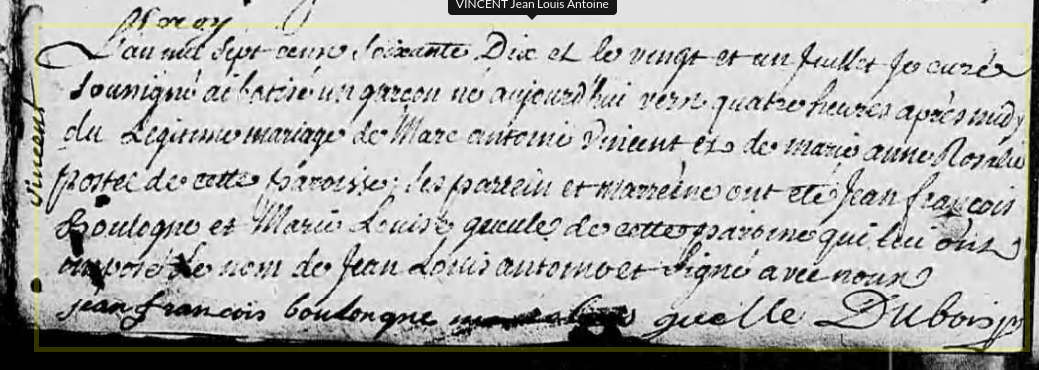 VINCENT Jean Louis Antoine
L'an mil sept cens soixante Dix et le vingt et un juillet je curé
soussigné ai batisé un garçon né aujourd'hui vers quatre heures après midy
vincent
du Legitime mariage de Marc antoine vincent et de marie anne Rosalie
postel de cette paroisse; les parrein et marreine ont eté jean françois
Boulogne et Marie Louise gueule de cette paroisse qui lui ont
imposé le nom de jean Louis antoine et signé avec nous
jean francois boulongne guelle DUbois